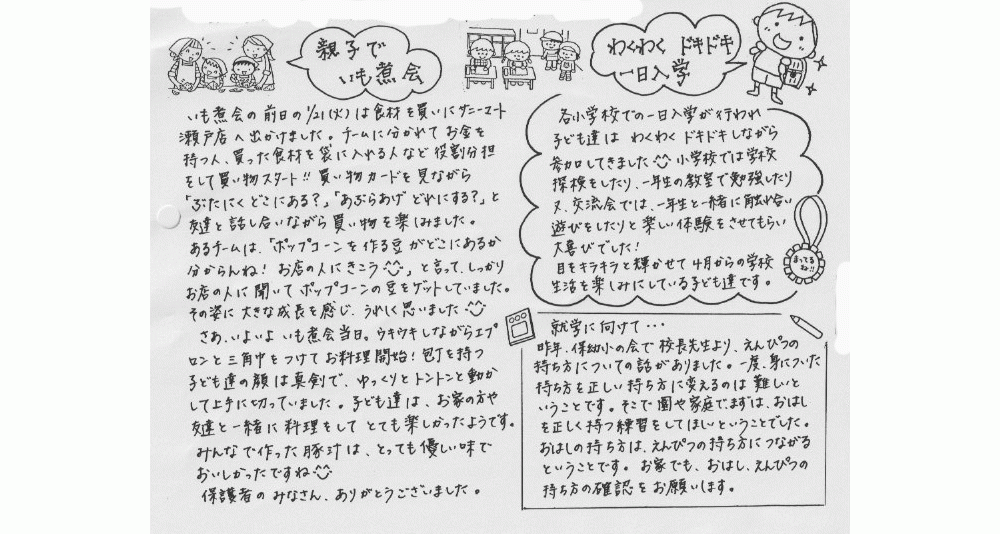 親子で
いも煮会
いも煮会の前日の1/21(火)は食材を買いにサニーマート
瀬戸店へ出かけました。チームに分かれてお金を
持つ人、買った食材を袋に入れる人など役割分担
をして買い物スタート!! 買い物カードを見ながら
「ぶたにくどこにある?」「あぶらあげどれにする?」と
友達と話し合いながら買い物を楽しみました。
あるチームは、「ポップコーンを作る豆がどこにあるか
分からんね! お店の人にきこう」と言って、しっかり
お店の人に聞いてポップコーンの豆をゲットしていました。
その姿に大きな成長を感じ、うれしく思いました
さあ、いよいよいも煮会当日。ウキウキしながらエプ
ロンと三角巾をつけてお料理開始! 包丁を持つ
子ども達の顔は真剣で、ゆっくりとトントンと動か
して上手に切っていました。子ども達は、お家の方や
友達と一緒に料理をしてとても楽しかったようです。
みんなで作った豚汁は、とっても優しい味で
おいしかったですね
保護者のみなさん、ありがとうございました。
わくわく ドキドキ
一日入学
各小学校での一日入学が行われ
子ども達は わくわく ドキドキしながら
参加してきました 小学校では学校
探検をしたり、一年生の教室で勉強したり
又、交流会では、一年生と一緒に触れ合い
遊びをしたりと楽しい体験をさせてもらい
大喜びでした!
目をキラキラと輝かせて4月からの学校
生活を楽しみにしている子ども達です。
まってる
ね!!
就学に向けて…
昨年、保幼小の会で校長先生より、えんぴつの
持ち方についての話がありました。一度、身についた
持ち方を正しい持ち方に変えるのは難しいと
いうことです。そこで園や家庭でまずは、おはし
を正しく持つ練習をしてほしいということでした。
おはしの持ち方は、えんぴつの持ち方につながる
ということです。お家でも、おはし、えんぴつの
持ち方の確認をお願いします。